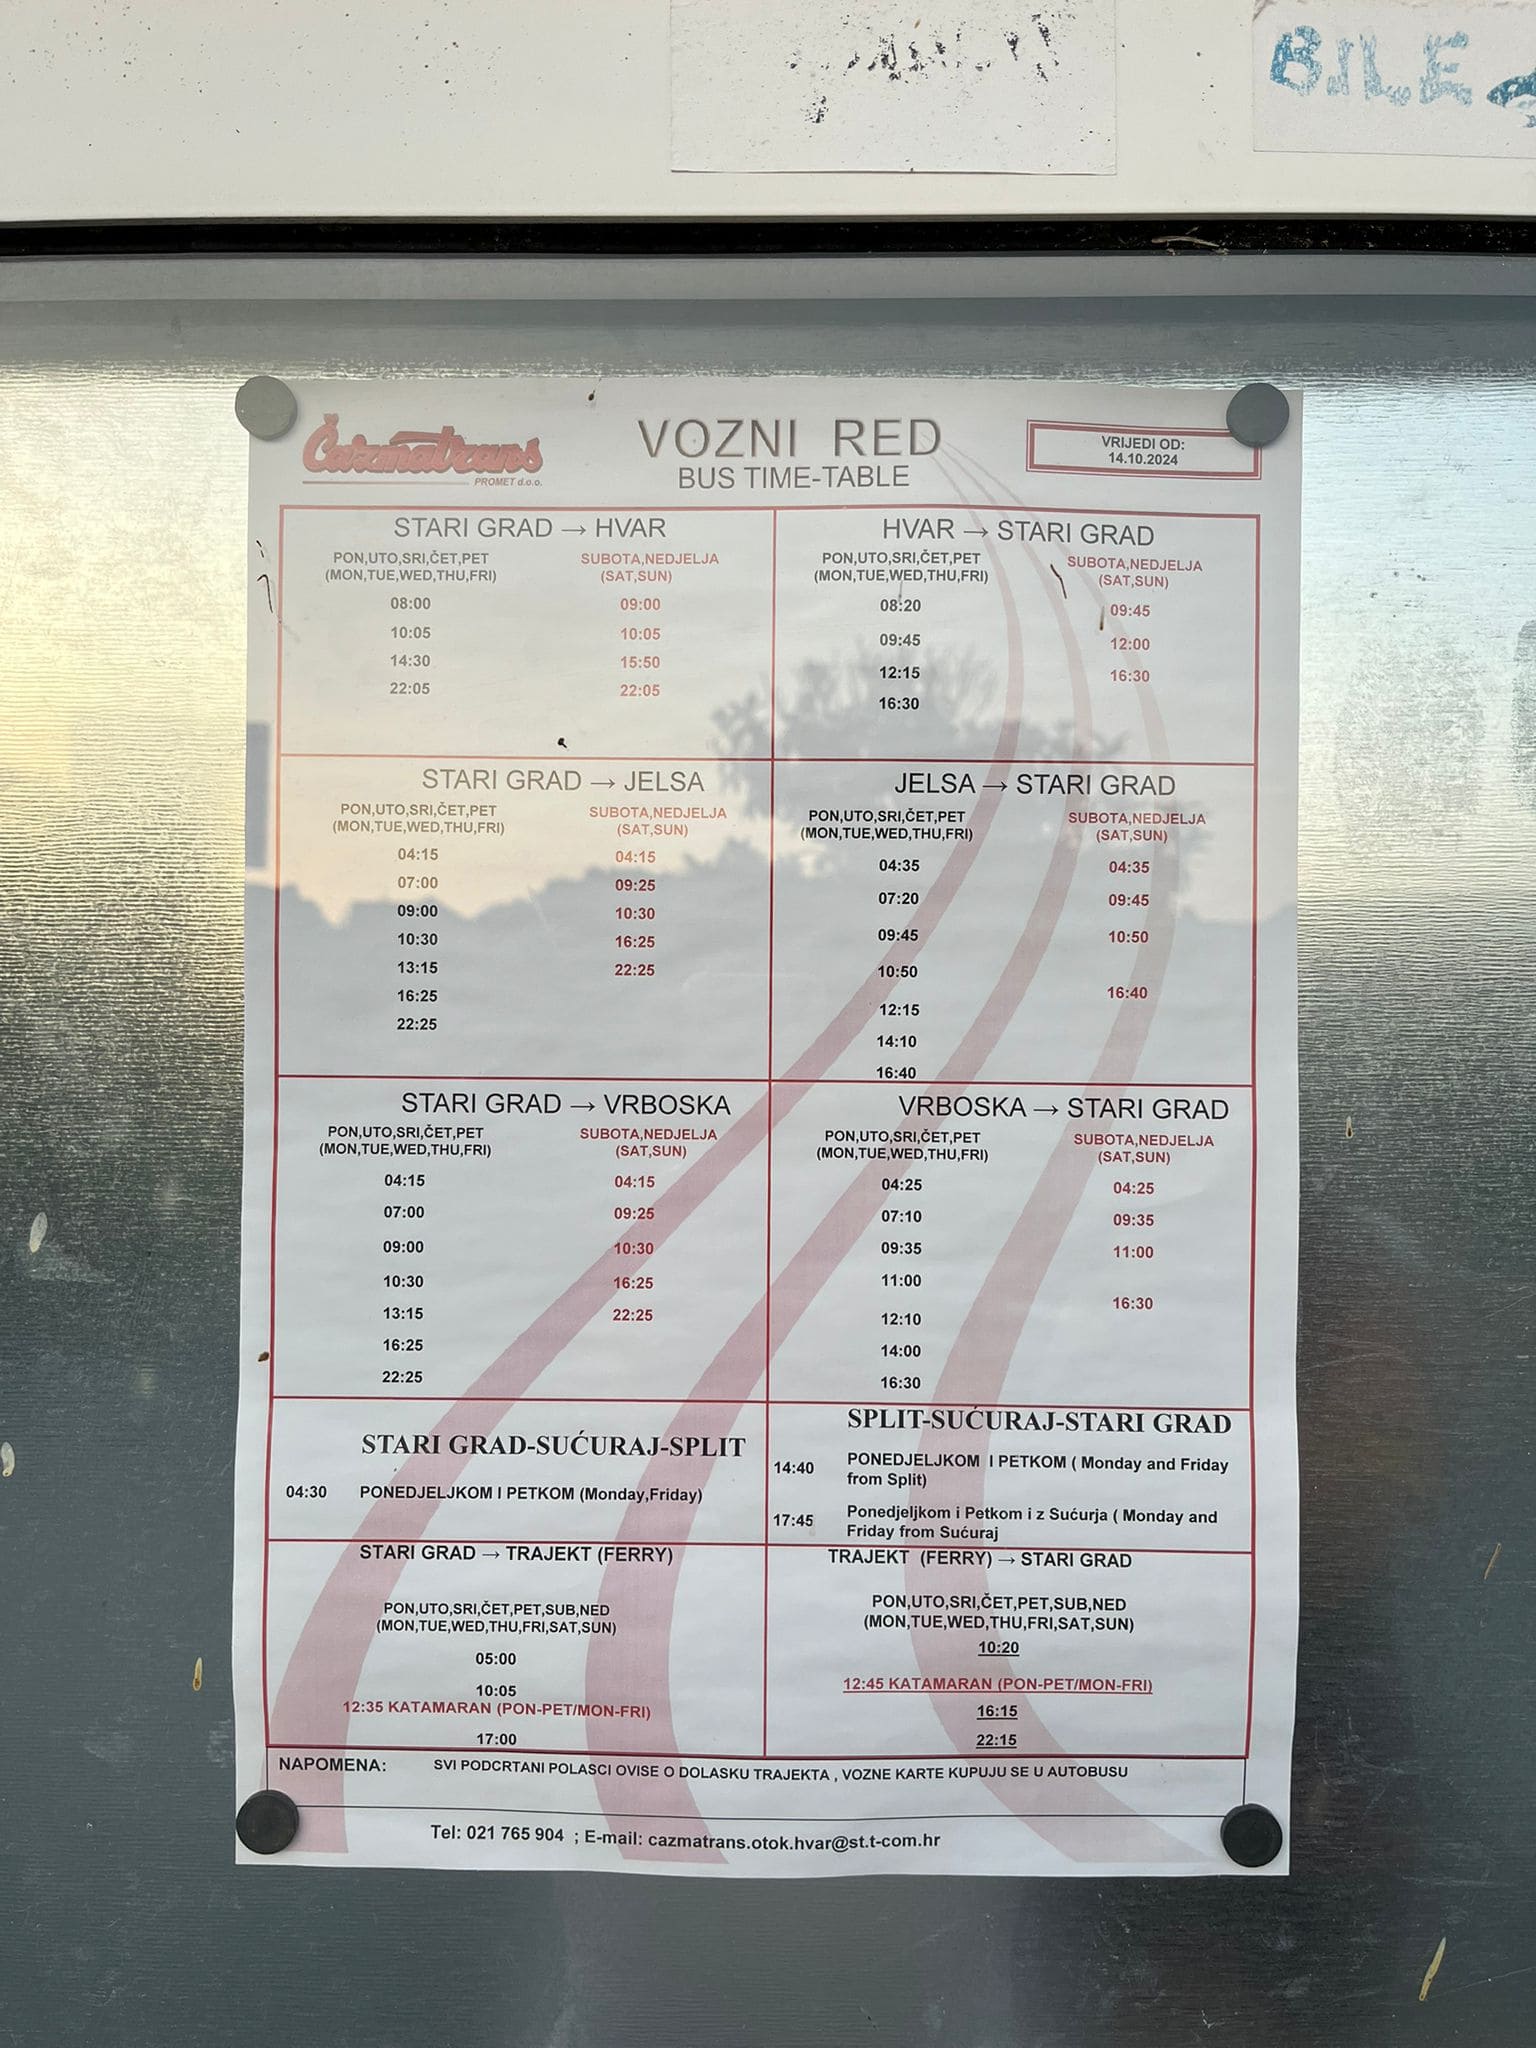 BILE
Čazmatrans
PROMET d.o.o.
VOZNI RED
BUS TIME-TABLE
VRIJEDI OD:
14.10.2024
STARI GRAD → HVAR
PON,UTO,SRI,ČET,PET
(MON,TUE,WED,THU,FRI)
08:00
10:05
14:30
22:05
SUBOTA,NEDJELJA
(SAT,SUN)
09:00
10:05
15:50
22:05
HVAR → STARI GRAD
PON,UTO,SRI,ČET,PET
(MON,TUE,WED,THU,FRI)
08:20
09:45
12:15
16:30
SUBOTA,NEDJELJA
(SAT,SUN)
09:45
12:00
16:30
STARI GRAD → JELSA
PON,UTO,SRI,ČET,PET
(MON,TUE,WED,THU,FRI)
04:15
07:00
09:00
10:30
13:15
16:25
22:25
SUBOTA,NEDJELJA
(SAT,SUN)
04:15
09:25
10:30
16:25
22:25
JELSA → STARI GRAD
PON,UTO,SRI,ČET,PET
(MON,TUE,WED,THU,FRI)
04:35
07:20
09:45
10:50
12:15
14:10
16:40
SUBOTA,NEDJELJA
(SAT,SUN)
04:35
09:45
10:50
16:40
STARI GRAD → VRBOSKA
PON,UTO,SRI,ČET,PET
(MON,TUE,WED,THU,FRI)
04:15
07:00
09:00
10:30
13:15
16:25
22:25
SUBOTA,NEDJELJA
(SAT,SUN)
04:15
09:25
10:30
16:25
22:25
VRBOSKA → STARI GRAD
PON,UTO,SRI,ČET,PET
(MON,TUE,WED,THU,FRI)
04:25
07:10
09:35
11:00
12:10
14:00
16:30
SUBOTA,NEDJELJA
(SAT,SUN)
04:25
09:35
11:00
16:30
STARI GRAD-SUĆURAJ-SPLIT
04:30 PONEDJELJKOM I PETKOM (Monday,Friday)
SPLIT-SUĆURAJ-STARI GRAD
14:40 PONEDJELJKOM I PETKOM ( Monday and Friday
from Split)
17:45 Ponedjeljkom i Petkom i z Sućurja ( Monday and
Friday from Sućuraj
STARI GRAD → TRAJEKT (FERRY)
PON,UTO,SRI,ČET,PET,SUB,NED
(MON,TUE,WED,THU,FRI,SAT,SUN)
05:00
10:05
12:35 KATAMARAN (PON-PET/MON-FRI)
17:00
TRAJEKT (FERRY) → STARI GRAD
PON,UTO,SRI,ČET,PET,SUB,NED
(MON,TUE,WED,THU,FRI,SAT,SUN)
10:20
12:45 KATAMARAN (PON-PET/MON-FRI)
16:15
22:15
NAPOMENA: SVI PODCRTANI POLASCI OVISE O DOLASKU TRAJEKTA , VOZNE KARTE KUPUJU SE U AUTOBUSU
Tel: 021 765 904 ; E-mail: cazmatrans.otok.hvar@st.t-com.hr